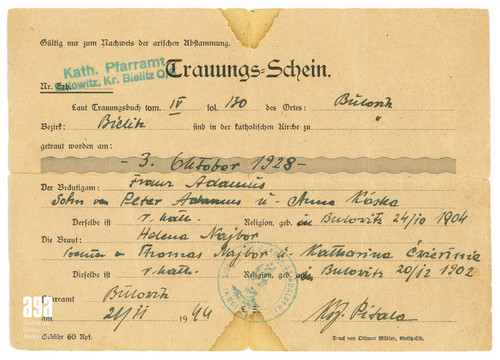 Gültig nur zum Nachweis der arischen Abstammung.
Kath. Pfarramt
Kr. Bielitz O.
Trauungs-Schein.
Nr. Erh.
Laut Trauungsbuch tom. IV fol. 130 des Ortes: Bulovitz
Bezirk: Bielitz sind in der katholischen Kirche zu "
getraut worden am:
- 3. Oktober 1928 -
Der Bräutigam: Franz Adamus
Sohn von Peter Adamus u. Anna Kóska
Derselbe ist r. kath. Religion, geb. in Bulovitz 24/10 1904
Die Braut: Helena Najbor
Thomas Najbor u. Katharina
Dieselbe ist r. kath. Religion, geb. in Bulovitz 20/12 1902
Pfarramt Bulovitz
1944
Gebühr 60 Rpf.
Druck von Othmar Mühler, Bielitz-OS.
aga